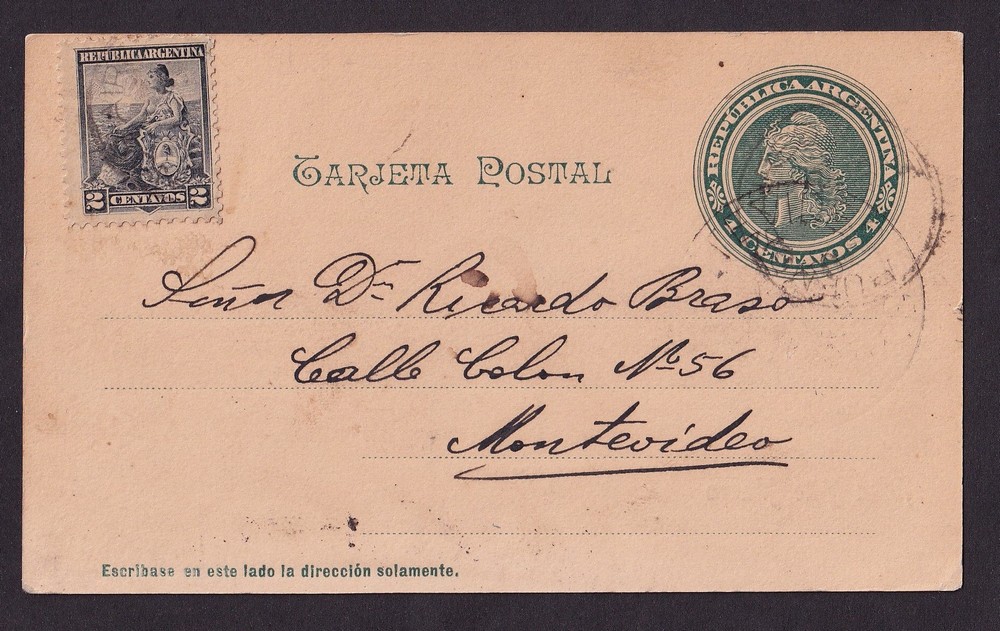 REPUBLICA ARGENTINA
2 CENTAVOS 2
REPÚBLICA ARGENTINA
4 CENTAVOS 4
TARJETA POSTAL
Señor Dr Ricardo Braso
Calle Colon No 56
Montevideo
Escríbase en este lado la dirección solamente.